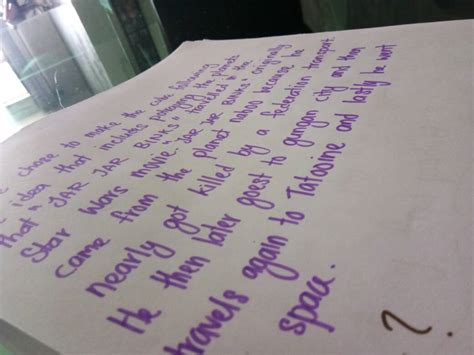 chose to make the cake following
idea that includes following the planets
that "JAR JAR BINKS" travelled in the
Star Wars movie. "JAR JAR BINKS" originally
came from the planet naboo because he
nearly got killed by a federation transport.
He then later goest to gungan city and then
travels again to Tatooine and lastly he went
space.
?